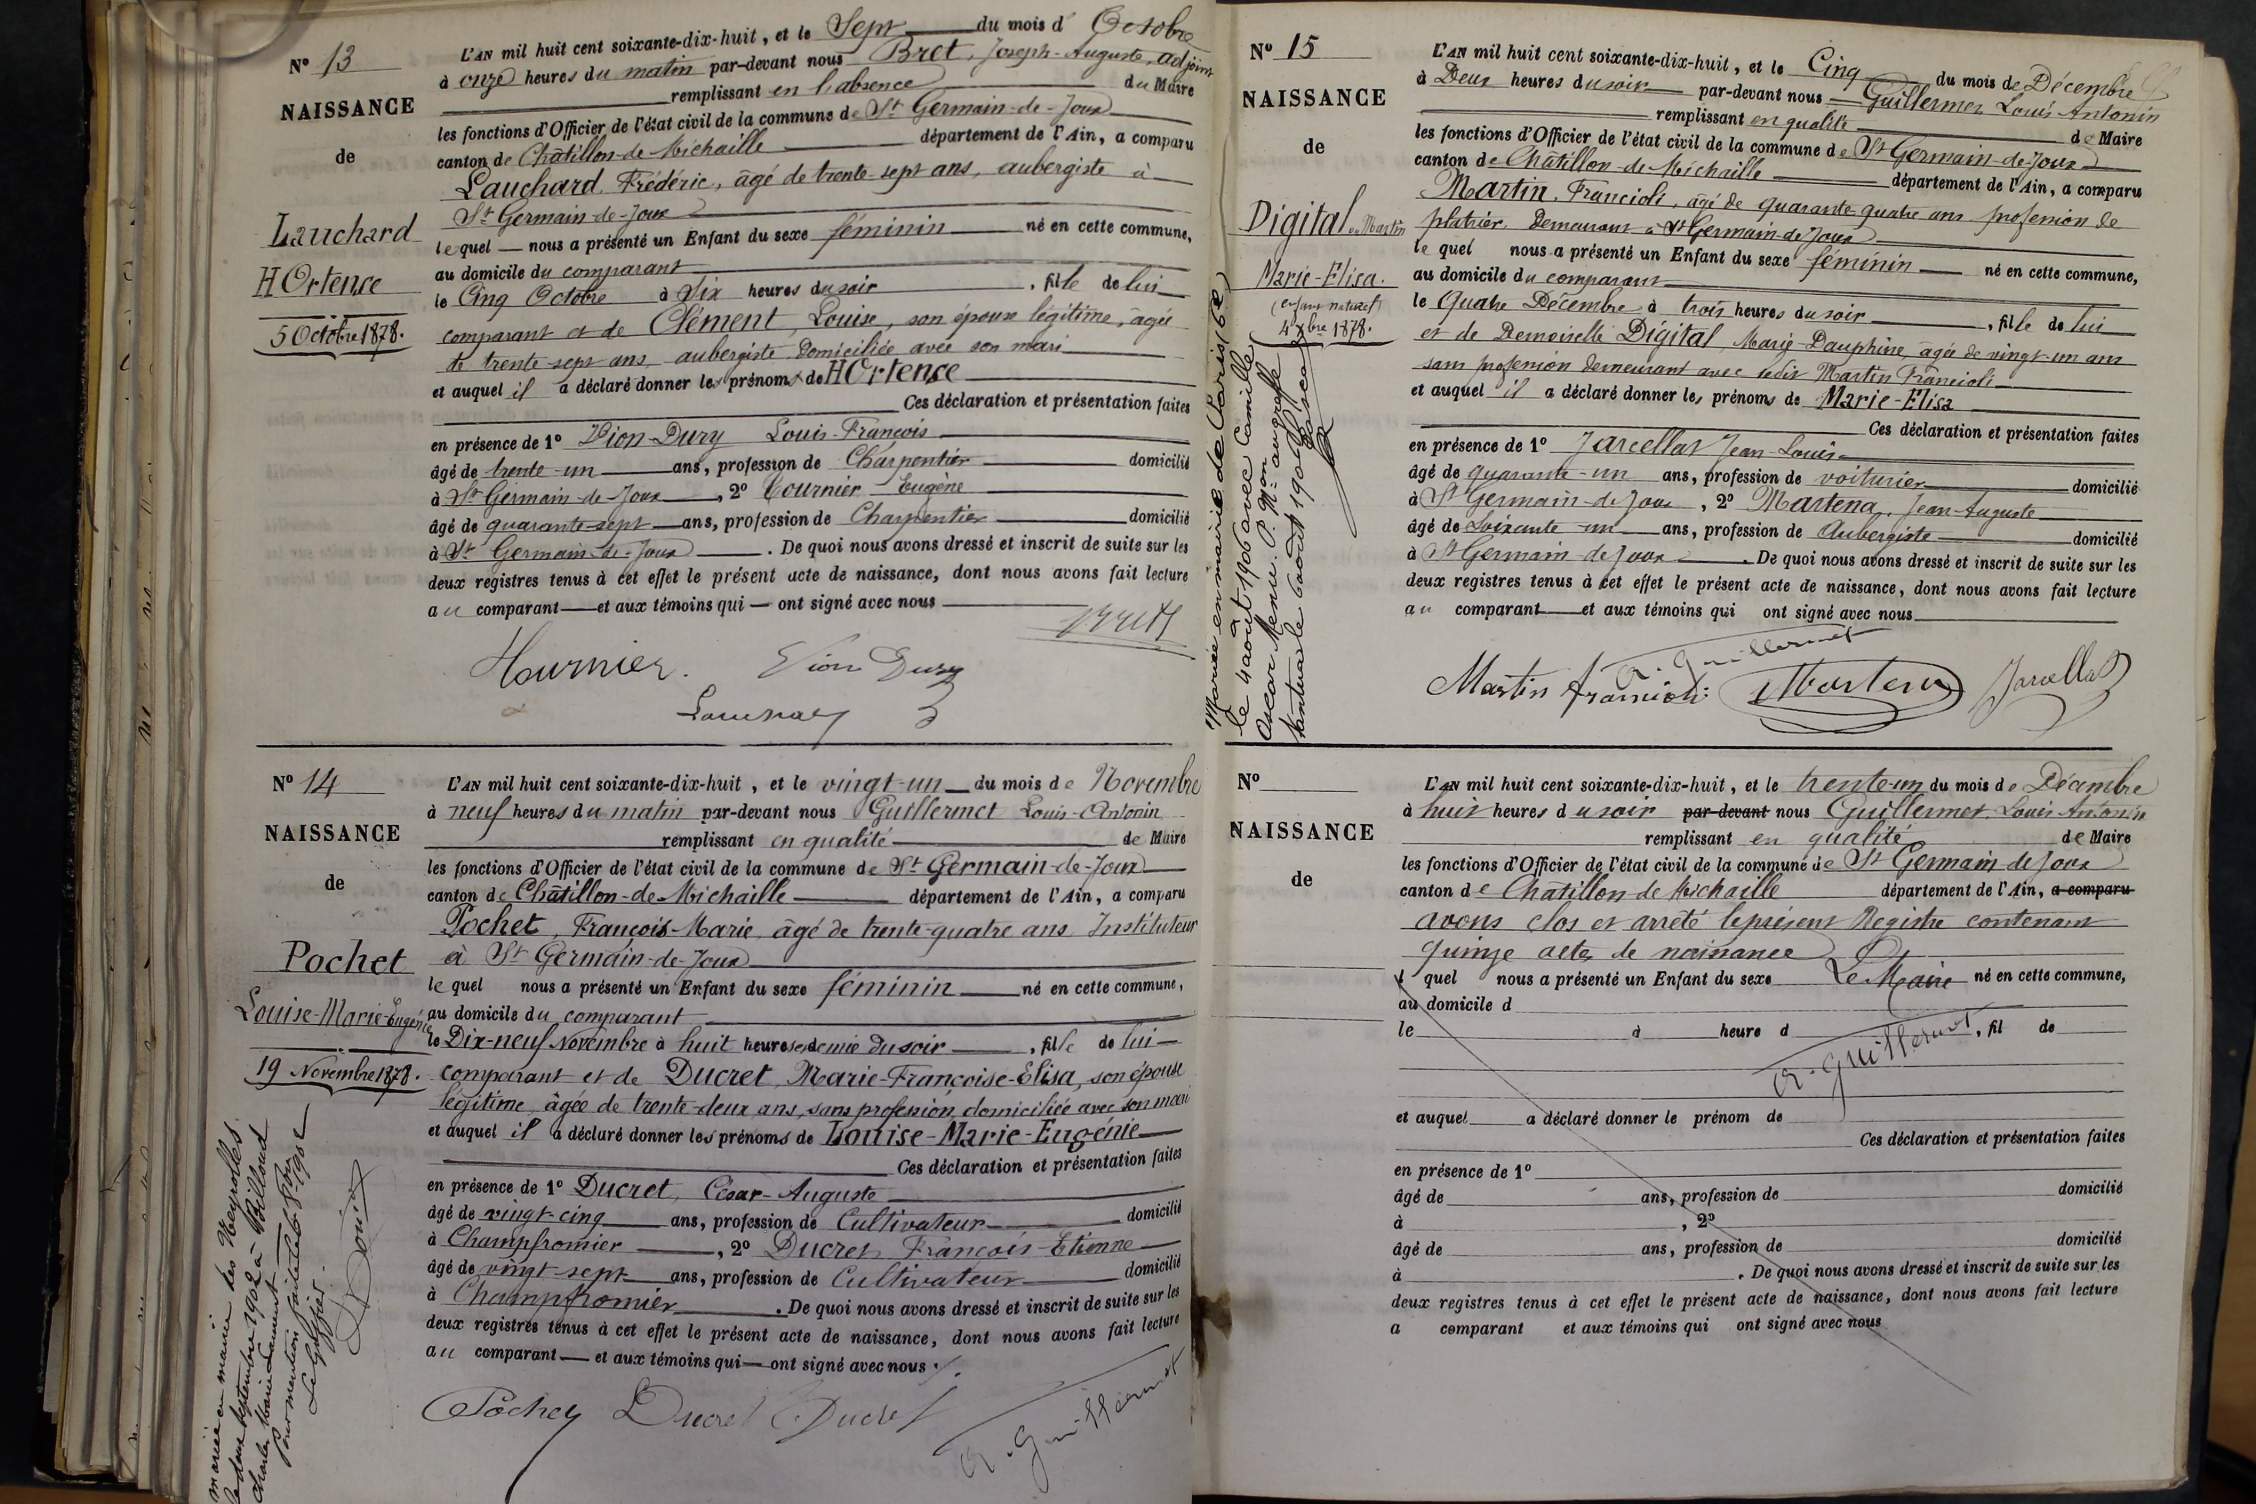 N° 13
NAISSANCE
de
Lauchard
HOrtence
5 Octobre 1878.
L'AN mil huit cent soixante-dix-huit, et le Sept du mois d' Octobre
à onze heures du matin par-devant nous Bret, Joseph-Auguste, adjoint
remplissant en l'absence du Maire
les fonctions d'Officier de l'état civil de la commune de St Germain-de-Joux
canton de Châtillon-de-Michaille département de l'Ain, a comparu
Lauchard, Frédéric, âgé de trente-sept ans, aubergiste à
St Germain-de-Joux
lequel nous a présenté un Enfant du sexe féminin né en cette commune,
au domicile du comparant
le Cinq Octobre à Six heures du soir, fille de lui
comparant et de Clément, Louise, son épouse légitime, âgée
de trente-sept ans, aubergiste domiciliée avec son mari
et auquel il a déclaré donner les prénoms de HOrtence
Ces déclaration et présentation faites
en présence de 1° Vion-Dury Louis-François
âgé de trente-un ans, profession de Charpentier domicilié
à St Germain-de-Joux, 2° Tournier Eugène
âgé de quarante-sept ans, profession de Charpentier domicilié
à St Germain-de-Joux. De quoi nous avons dressé et inscrit de suite sur les
deux registres tenus à cet effet le présent acte de naissance, dont nous avons fait lecture
au comparant et aux témoins qui ont signé avec nous
Bret
Tournier. Vion Dury
N° 14
NAISSANCE
de
Pochet
Louise-Marie-Eugénie
19 Novembre 1878.
mariée en mairie des Neyrolles
septembre 1902 à Billoud
Charles Marie
Pour mention
Le Greffier
L'AN mil huit cent soixante-dix-huit, et le vingt-un du mois de Novembre
à neuf heures du matin par-devant nous Guillermet Louis-Antonin
remplissant en qualité de Maire
les fonctions d'Officier de l'état civil de la commune de St Germain-de-Joux
canton de Châtillon-de-Michaille département de l'Ain, a comparu
Pochet, François-Marie, âgé de trente-quatre ans Instituteur
à St Germain-de-Joux
lequel nous a présenté un Enfant du sexe féminin né en cette commune,
au domicile du comparant
le Dix-neuf Novembre à huit heures et demie du soir, fille de lui
comparant et de Ducret, Marie-Françoise-Elisa, son épouse
légitime, âgée de trente-deux ans, sans profession, domiciliée avec son mari
et auquel il a déclaré donner les prénoms de Louise-Marie-Eugénie
Ces déclaration et présentation faites
en présence de 1° Ducret, César-Auguste
âgé de vingt-cinq ans, profession de Cultivateur domicilié
à Champfromier, 2° Ducret, François-Etienne
âgé de vingt-sept ans, profession de Cultivateur domicilié
à Champfromier. De quoi nous avons dressé et inscrit de suite sur les
deux registres tenus à cet effet le présent acte de naissance, dont nous avons fait lecture
au comparant et aux témoins qui ont signé avec nous.
Pochet Ducret Ducret A. Guillermet
N° 15
NAISSANCE
de
Digital ou Martin
Marie-Elisa.
(enfant naturel)
4 Xbre 1878.
Mariée en mairie de Paris 16e
le 4 août 1906 avec Camille
Oscar Menu. P. Mon au greffe
Nantua le 6 août 1906
L'AN mil huit cent soixante-dix-huit, et le Cinq du mois de Décembre
à Deux heures du soir par-devant nous Guillermet Louis Antonin
remplissant en qualité de Maire
les fonctions d'Officier de l'état civil de la commune de St Germain-de-Joux
canton de Châtillon-de-Michaille département de l'Ain, a comparu
Martin, Francioli, âgé de quarante-quatre ans profession de
platrier, Demeurant à St Germain-de-Joux
lequel nous a présenté un Enfant du sexe féminin né en cette commune,
au domicile du comparant
le Quatre Décembre à trois heures du soir, fille de lui
et de Demoiselle Digital, Marie-Dauphine, âgée de vingt-un ans
sans profession demeurant avec ledit Martin Francioli
et auquel il a déclaré donner les prénoms de Marie-Elisa
Ces déclaration et présentation faites
en présence de 1° Jarcellat Jean-Louis
âgé de quarante-un ans, profession de voiturier domicilié
à St Germain-de-Joux, 2° Martena, Jean-Auguste
âgé de Soixante-un ans, profession de Aubergiste domicilié
à St Germain-de-Joux. De quoi nous avons dressé et inscrit de suite sur les
deux registres tenus à cet effet le présent acte de naissance, dont nous avons fait lecture
au comparant et aux témoins qui ont signé avec nous
A. Guillermet
Martin Francioli Martena Jarcellat
N°
NAISSANCE
de
L'AN mil huit cent soixante-dix-huit, et le trente-un du mois de Décembre
à huit heures du soir par-devant nous Guillermet Louis Antonin
remplissant en qualité de Maire
les fonctions d'Officier de l'état civil de la commune de St Germain de Joux
canton de Châtillon de Michaille département de l'Ain, a comparu
avons clos et arrêté le présent Registre contenant
quinze actes de naissance
l quel nous a présenté un Enfant du sexe Le Maire né en cette commune,
au domicile d
le à heure d, fil de
A. Guillermet
et auquel a déclaré donner le prénom de
Ces déclaration et présentation faites
en présence de 1°
âgé de ans, profession de domicilié
à , 2°
âgé de ans, profession de domicilié
à . De quoi nous avons dressé et inscrit de suite sur les
deux registres tenus à cet effet le présent acte de naissance, dont nous avons fait lecture
a comparant et aux témoins qui ont signé avec nous